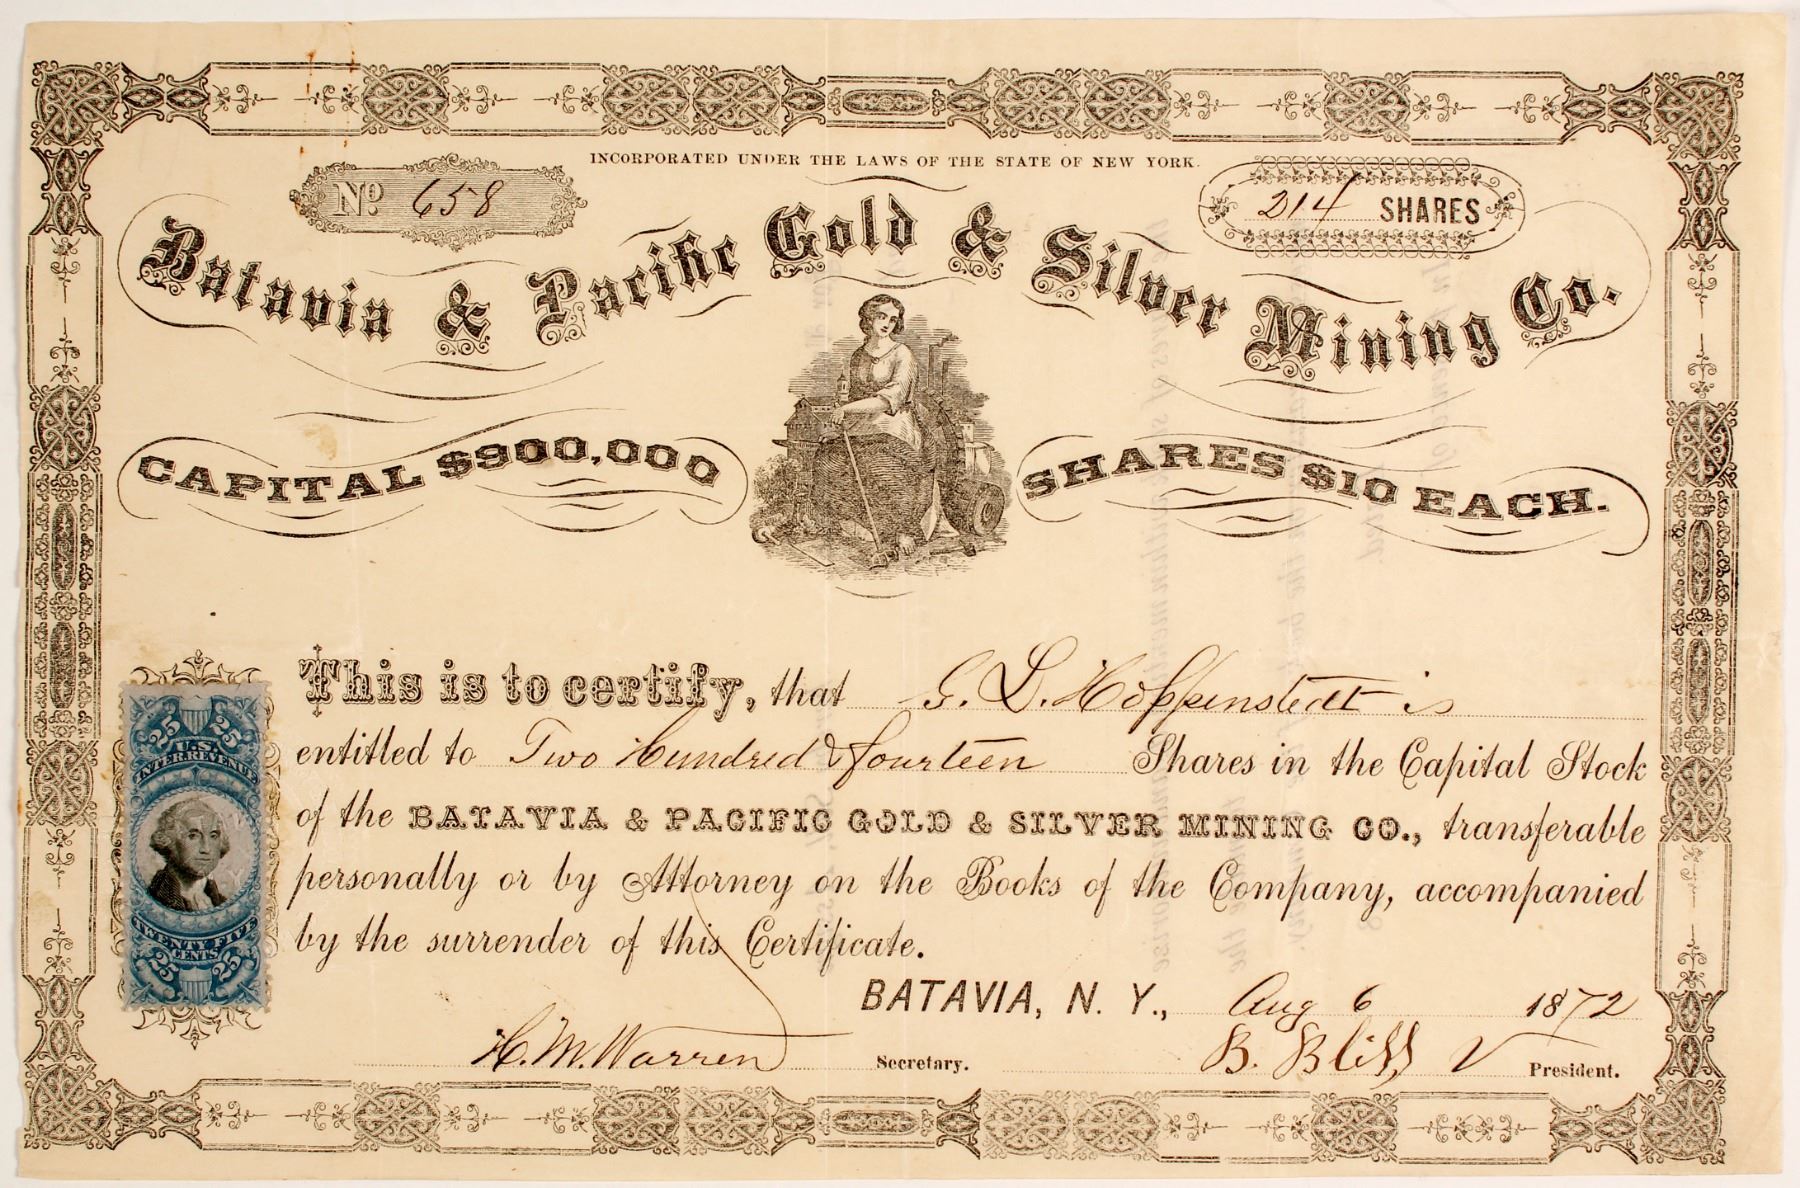 INCORPORATED UNDER THE LAWS OF THE STATE OF NEW YORK.
No. 658
214 SHARES
Batavia & Pacific Gold & Silver Mining Co.
CAPITAL $900,000
SHARES $10 EACH.
This is to certify, that G. D. Hoppenstedt is
entitled to Two Hundred & fourteen Shares in the Capital Stock
of the BATAVIA & PACIFIC GOLD & SILVER MINING CO., transferable
personally or by Attorney on the Books of the Company, accompanied
by the surrender of this Certificate.
BATAVIA, N. Y., Aug 6 1872
H. M. Warren Secretary. B. Bliss V President.
25 25
U.S.
INTER. REVENUE
TWENTY FIVE
CENTS
25 25